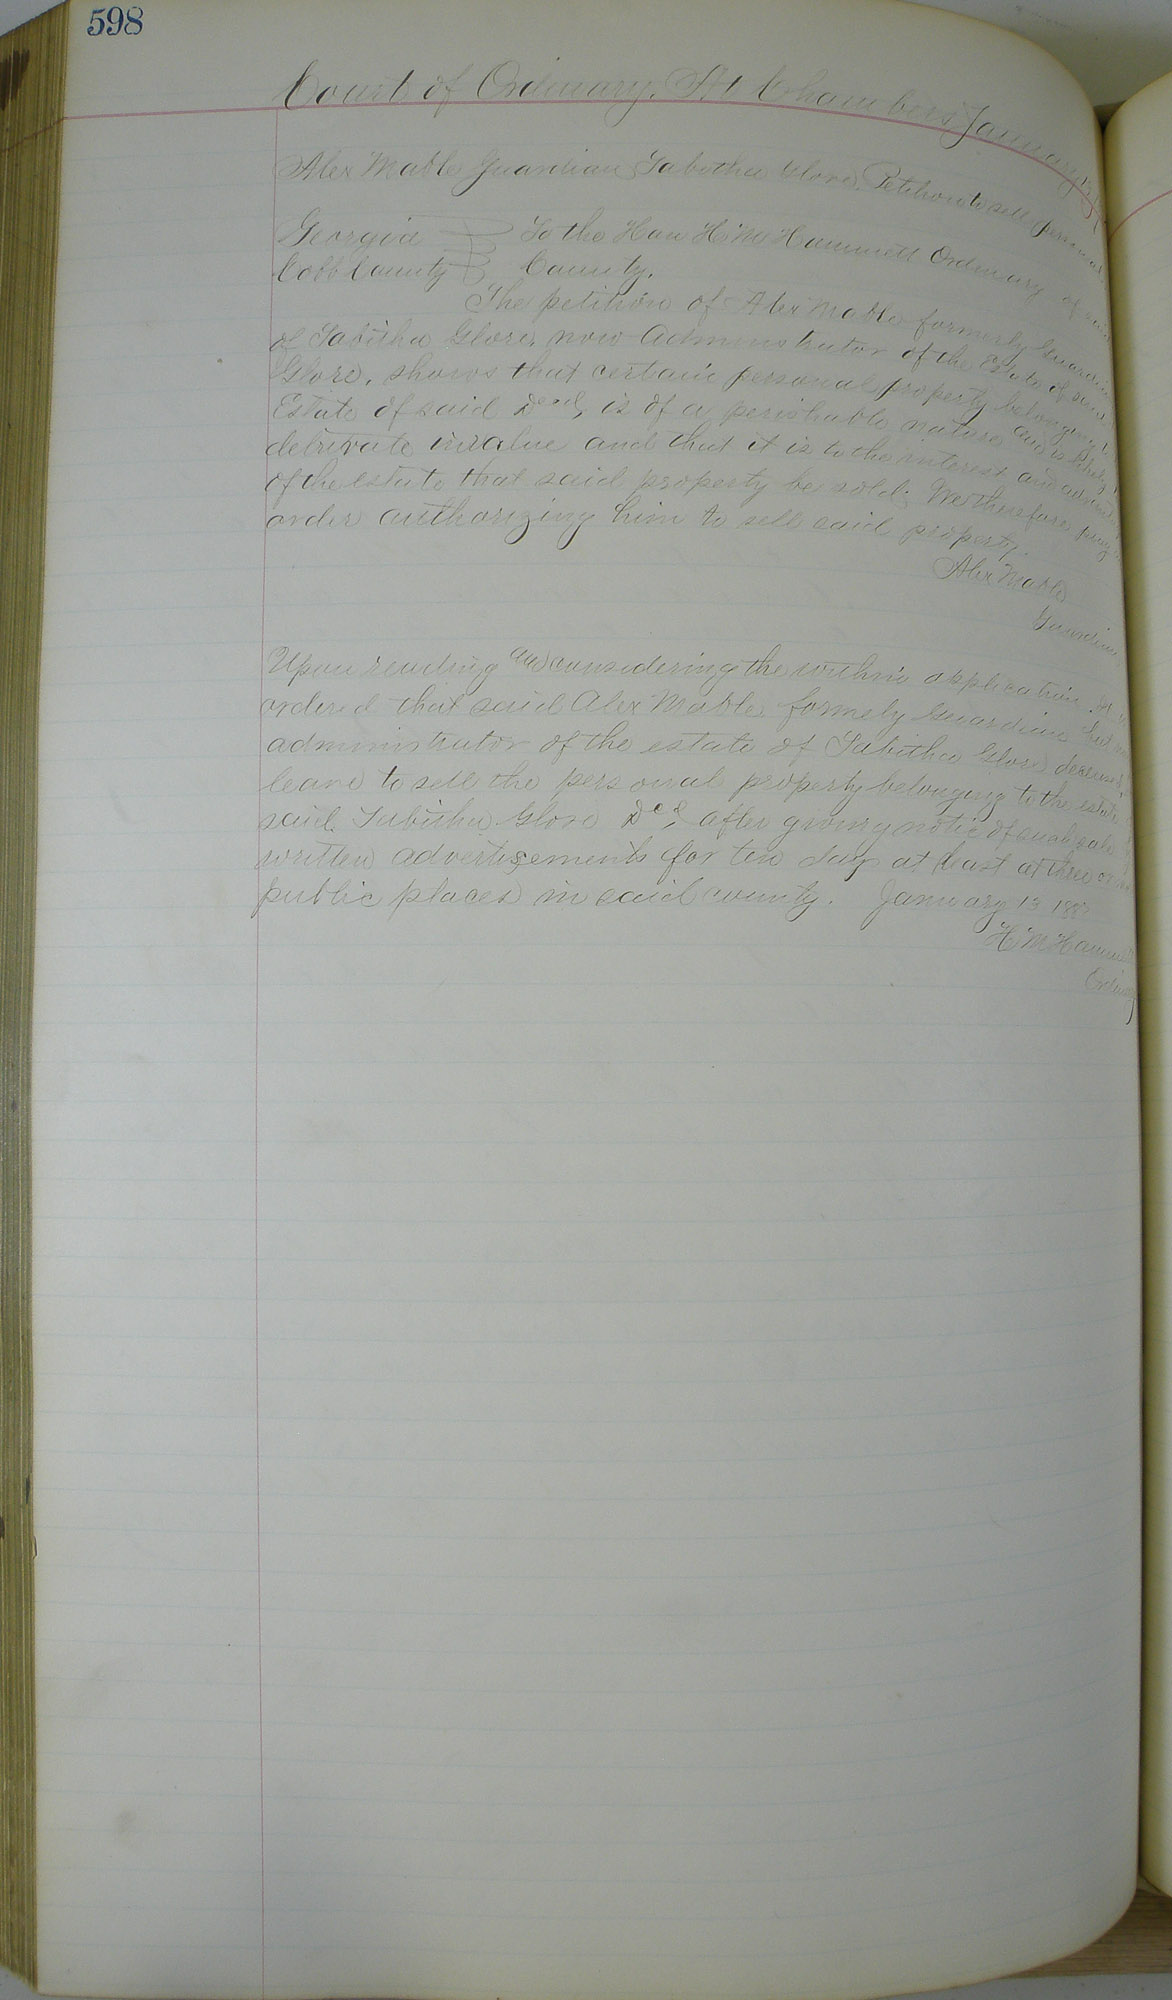 598
Court of Ordinary. At Chambers January
Alex Mable Guardian Tabitha Glore. Petition to sell personal
Georgia To the Hon H M Hammett Ordinary of said
Cobb County County.
The petition of Alex Mable formerly Guardian
of Tabitha Glore, now Administrator of the Estate of said
Glore. shows that certain personal property belonging to
Estate of said Decd, is of a perishable nature and is likely
in value and that it is to the interest and
of the estate that said property be sold. therefore pray
order authorizing him to sell said property.
Alex Mable
Guardian
Upon reading and considering the within application It is
ordered that said Alex Mable formely Guardian but
administrator of the estate of Tabitha Glore deceased,
leave to sell the personal property belonging to the estate
said Tabitha Glore Decd, after giving notic of such sale
written advertisements for ten days at least at three or
public places in said county. January 13
H M Hammett
Ordinary